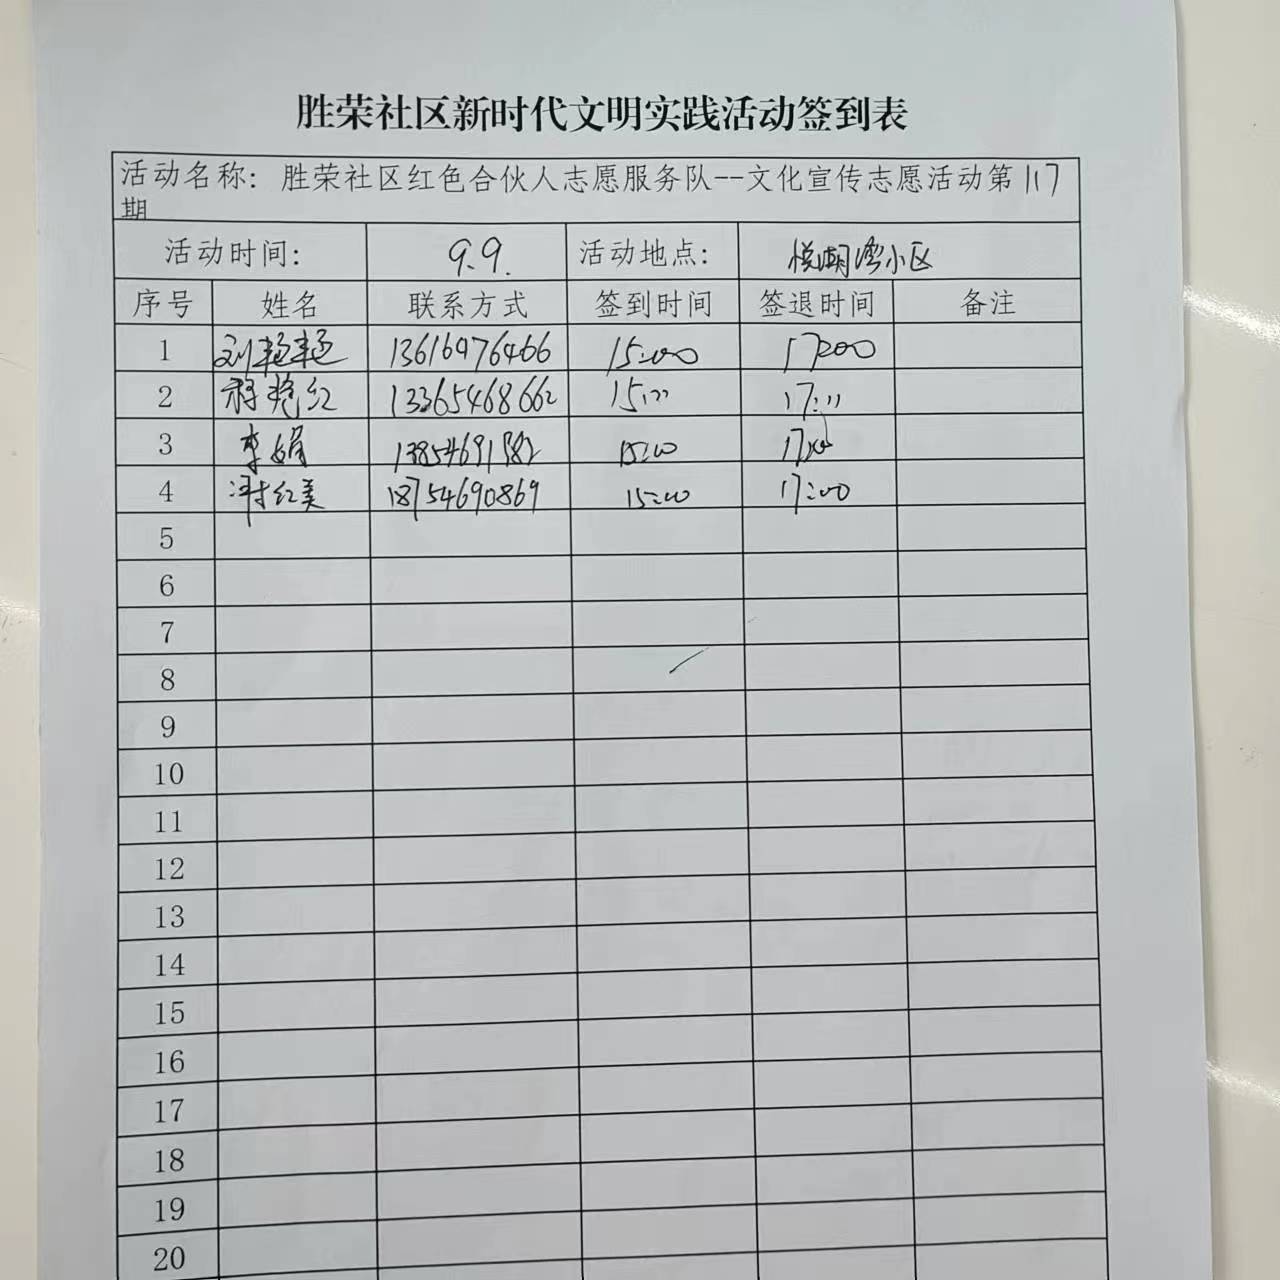 胜荣社区新时代文明实践活动签到表
活动名称：胜荣社区红色合伙人志愿服务队--文化宣传志愿活动第117
期
活动时间： 9.9. 活动地点： 悦湖湾小区
序号 姓名 联系方式 签到时间 签退时间 备注
1 刘艳艳 13616976466 15:00 17:00
2 艳红 13365468662 15:00 17:00
3 李娟 15:00 17:00
4 红美 18754690869 15:00 17:00
5
6
7
8
9
10
11
12
13
14
15
16
17
18
19
20